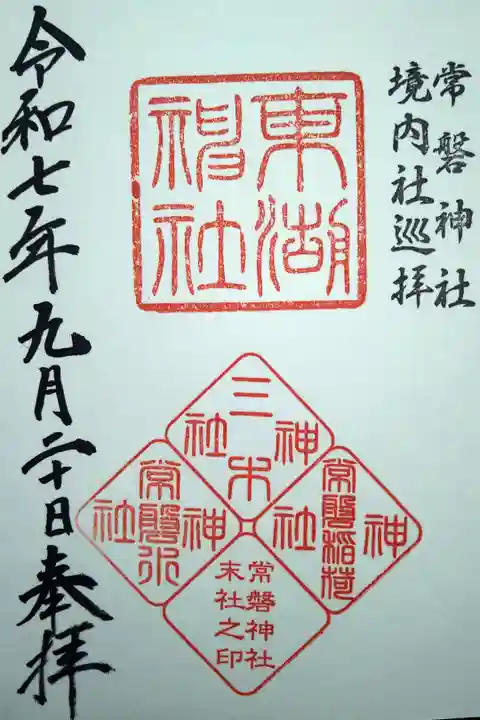 常磐神社
境内社巡拝
東湖
神社
三木
神社
常磐稲荷
神社
常磐水
神社
常磐神社
末社之印
令和七年九月二十日奉拝